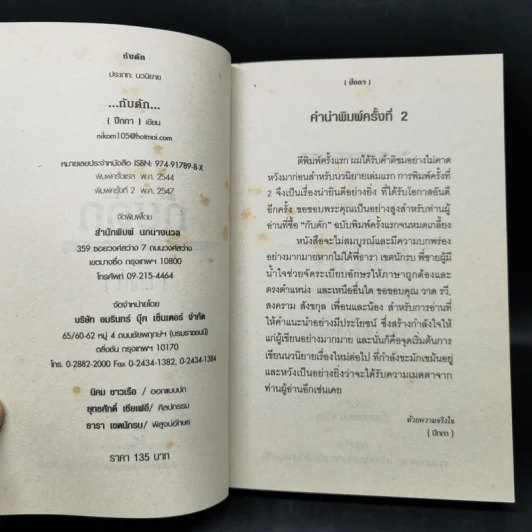 กับดัก
ประเภท: นวนิยาย
...กับดัก...
[ ปีกกา ] เขียน
nikom105@hotmai.com
หมายเลขประจำหนังสือ ISBN: 974-91789-8-X
พิมพ์ครั้งแรก พ.ศ. 2544
พิมพ์ครั้งที่ 2 พ.ศ. 2547
จัดพิมพ์โดย
สำนักพิมพ์ นกนางนวล
359 ซอยวงศ์สว่าง 7 ถนนวงศ์สว่าง
เขตบางซื่อ กรุงเทพฯ 10800
โทรศัพท์ 09-215-4464
จัดจำหน่ายโดย
บริษัท อมรินทร์ บุ๊ค เซ็นเตอร์ จำกัด
65/60-62 หมู่ 4 ถนนชัยพฤกษ์ฯ (บรมราชชนนี)
ตลิ่งชัน กรุงเทพฯ 10170
โทร. 0-2882-2000 Fax 0-2434-1382, 0-2434-1384
นิคม ชาวเรือ / ออกแบบปก
ยุทธศักดิ์ เชียเฟอี / ศิลปกรรม
ธารา เขตนักรบ / พิสูจน์อักษร
ราคา 135 บาท
[ ปีกกา ]
คำนำพิมพ์ครั้งที่ 2
ตีพิมพ์ครั้งแรก ผมได้รับคำติชมอย่างไม่คาด
หวังมาก่อนสำหรับนวนิยายเล่มแรก การพิมพ์ครั้งที่
2 จึงเป็นเรื่องน่ายินดีอย่างยิ่ง ที่ได้รับโอกาสอันดี
อีกครั้ง ขอขอบพระคุณเป็นอย่างสูงสำหรับท่านผู้
อ่านที่ซื้อ "กับดัก" ฉบับพิมพ์ครั้งแรกจนหมดเกลี้ยง
หนังสือจะไม่สมบูรณ์และมีความบกพร่อง
อย่างมากมายหากไม่ได้พี่ธารา เขตนักรบ พี่ชายผู้มี
น้ำใจช่วยจัดระเบียบอักษรให้ภาษาถูกต้องและ
ตรงตำแหน่ง และเหนืออื่นใด ขอขอบคุณ วาด รวี,
สงคราม สังขกุล เพื่อนและน้อง สำหรับการอ่านที่
ให้คำแนะนำอย่างมีประโยชน์ ซึ่งสร้างกำลังใจให้
แก่ผู้เขียนอย่างมากมาย และนั่นก็คือจุดเริ่มต้นการ
เขียนนวนิยายเรื่องใหม่ต่อไป ที่กำลังขะมักเขม้นอยู่
และหวังเป็นอย่างยิ่งว่าจะได้รับความเมตตาจาก
ท่านผู้อ่านอีกเช่นเคย
ด้วยความจริงใจ
[ ปีกกา ]